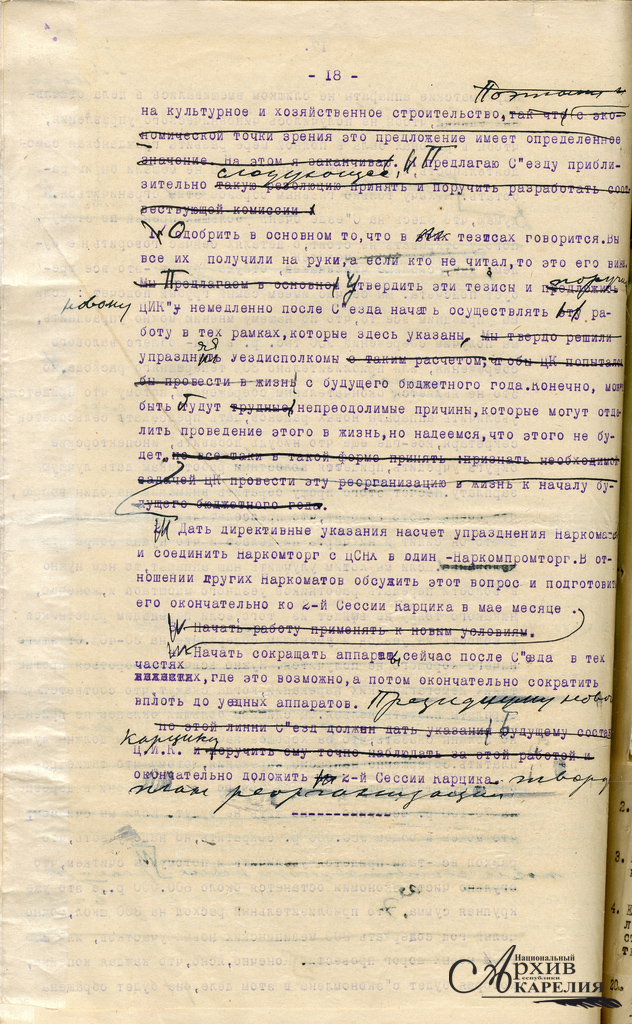 - 18 -
Поэтому
на культурное и хозяйственное строительство, так что с эко-
номической точки зрения это предложение имеет определенное
значение. На этом я заканчиваю. Предлагаю С"езду прибли-
следующее:
зительно такую резолюцию принять и поручить разработать соот
ветствующей комиссии
Одобрить в основном то, что в тезисах говорится. Вы
все их получили на руки, а если кто не читал, то это его вина.
Мы Предлагаем в основном Утвердить эти тезисы и предложить
поручи
новому
ЦИК"у немедленно после С"езда начать осуществлять ра-
боту в тех рамках, которые здесь указаны. Мы твердо решили
упразднить Уездисполкомы с таким расчетом, чтобы ЦК попытался
бы провести в жизнь с будущего бюджетного года. Конечно, може
быть будут трудные, непреодолимые причины, которые могут отда-
лить проведение этого в жизнь, но надеемся, что этого не бу-
дет, но все-таки в такой форме принять и признать необходимой
задачей ЦК провести эту реорганизацию в жизнь к началу бу-
дущего бюджетного года.
Дать директивные указания насчет упразднения Наркоматов
и соединить Наркомторг с ЦСНХ в один -Наркомпромторг. В от-
ношении других Наркоматов обсудить этот вопрос и подготовить
его окончательно ко 2-й Сессии Карцика в мае месяце.
Начать работу применять к новым условиям.
Начать сокращать аппараты, сейчас после С"езда в тех
частях
где это возможно, а потом окончательно сократить
вплоть до уездных аппаратов. Президиуму нового
По этой линии С"езд должен дать указания будущему составу
Карцика
Ц.И.К. и поручить ему точно наблюдать за этой работой и
окончательно доложить 2-й Сессии Карцика. тверд
план реорганизации
2.
3.
4.
20.
Национальный
Архив
республики
Карелия